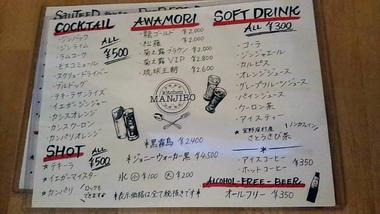 COCKTAIL
ALL ¥500
・ジンバック
・ジンライム
・ラムコーク
・モスコミュール
・スクリュードライバー
・ブルドック
・テキーラサンライズ
・イエガージンジャー
・カシスオレンジ
・カシスウーロン
・カンパリオレンジ
SHOT
ALL ¥500
・テキーラ
・イエガーマイスター
・カンパリ
ロックも
できます
AWAMORI
・龍ゴールド ¥2,000
・松藤 ¥2,000
・菊之露ブラウン ¥2,000
・菊之露VIP ¥2,800
・琉球王朝 ¥2,600
KITCHEN
MANJIRO
*黒霧島 ¥2400
*ジョニーウォーカー黒 ¥4,500
氷 小¥100 大¥200
*表示価格は全て税抜きです*
SOFT DRINK
ALL ¥300
・コーラ
・ジンジャエール
・カルピス
・オレンジジュース
・グレープフルーツジュース
・パインジュース
・ウーロン茶
・アイスティー
ノンカフェイン
・宜野座村産
さとうきび茶
・アイスコーヒー
・ホットコーヒー
¥350
ALCOHOL-FREE-BEER
オールフリー ¥350